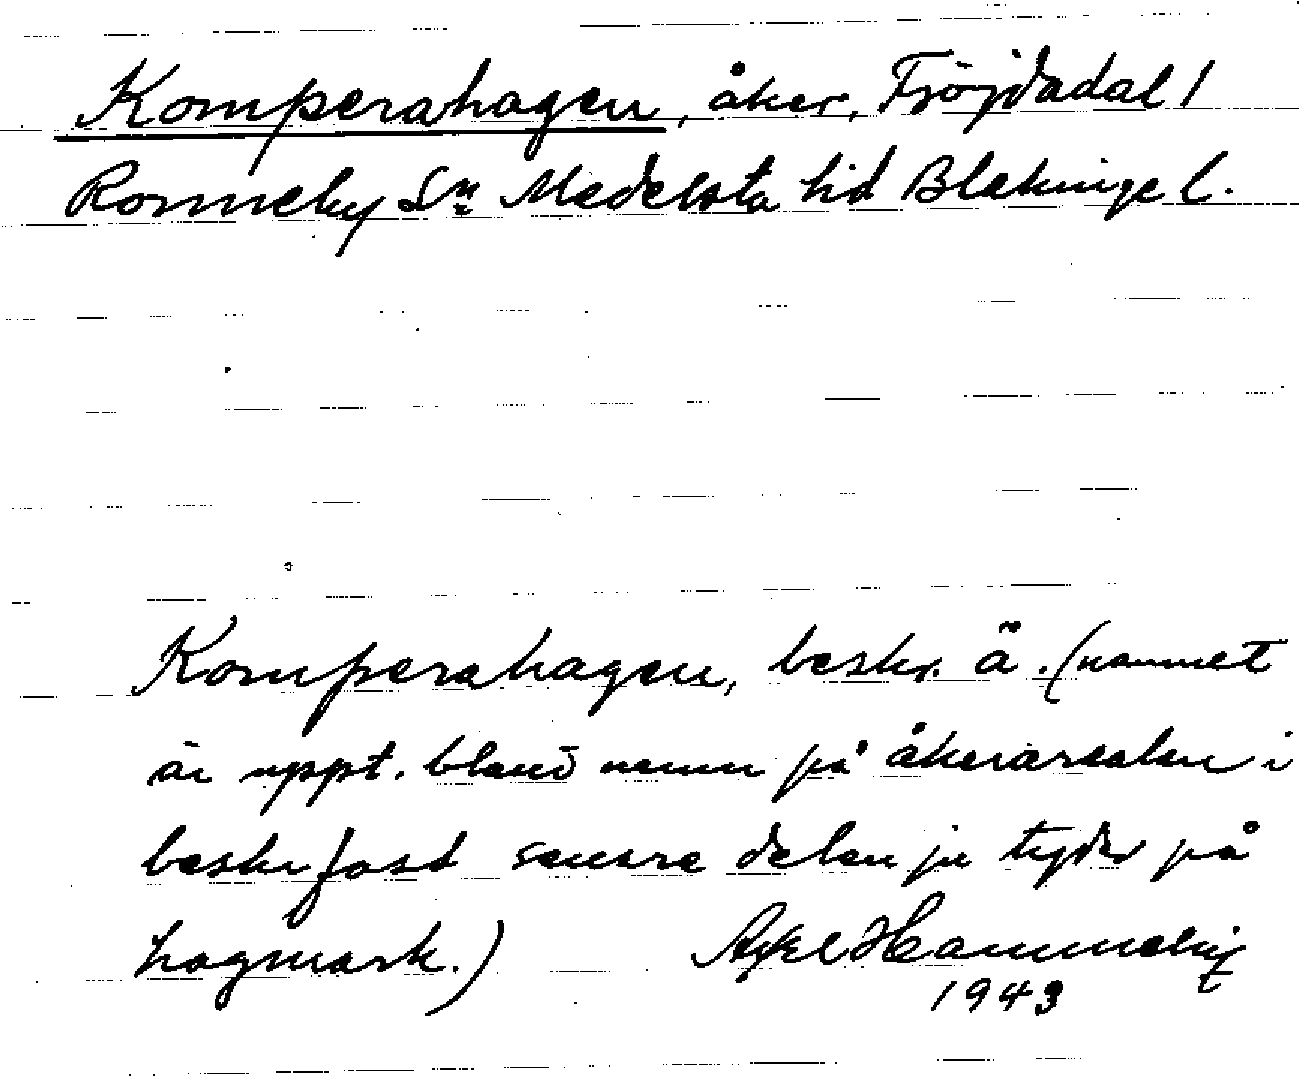 Komperahagen, åker, Fröjdadal 1
Ronneby Sn Medelsta hd Blekinge l.
Komperahagen, beskr. å. (namnet
är uppt. bland namn på åkerarealen i
beskr fast senare delen ju tyder på
hagmark.) Axel
1943